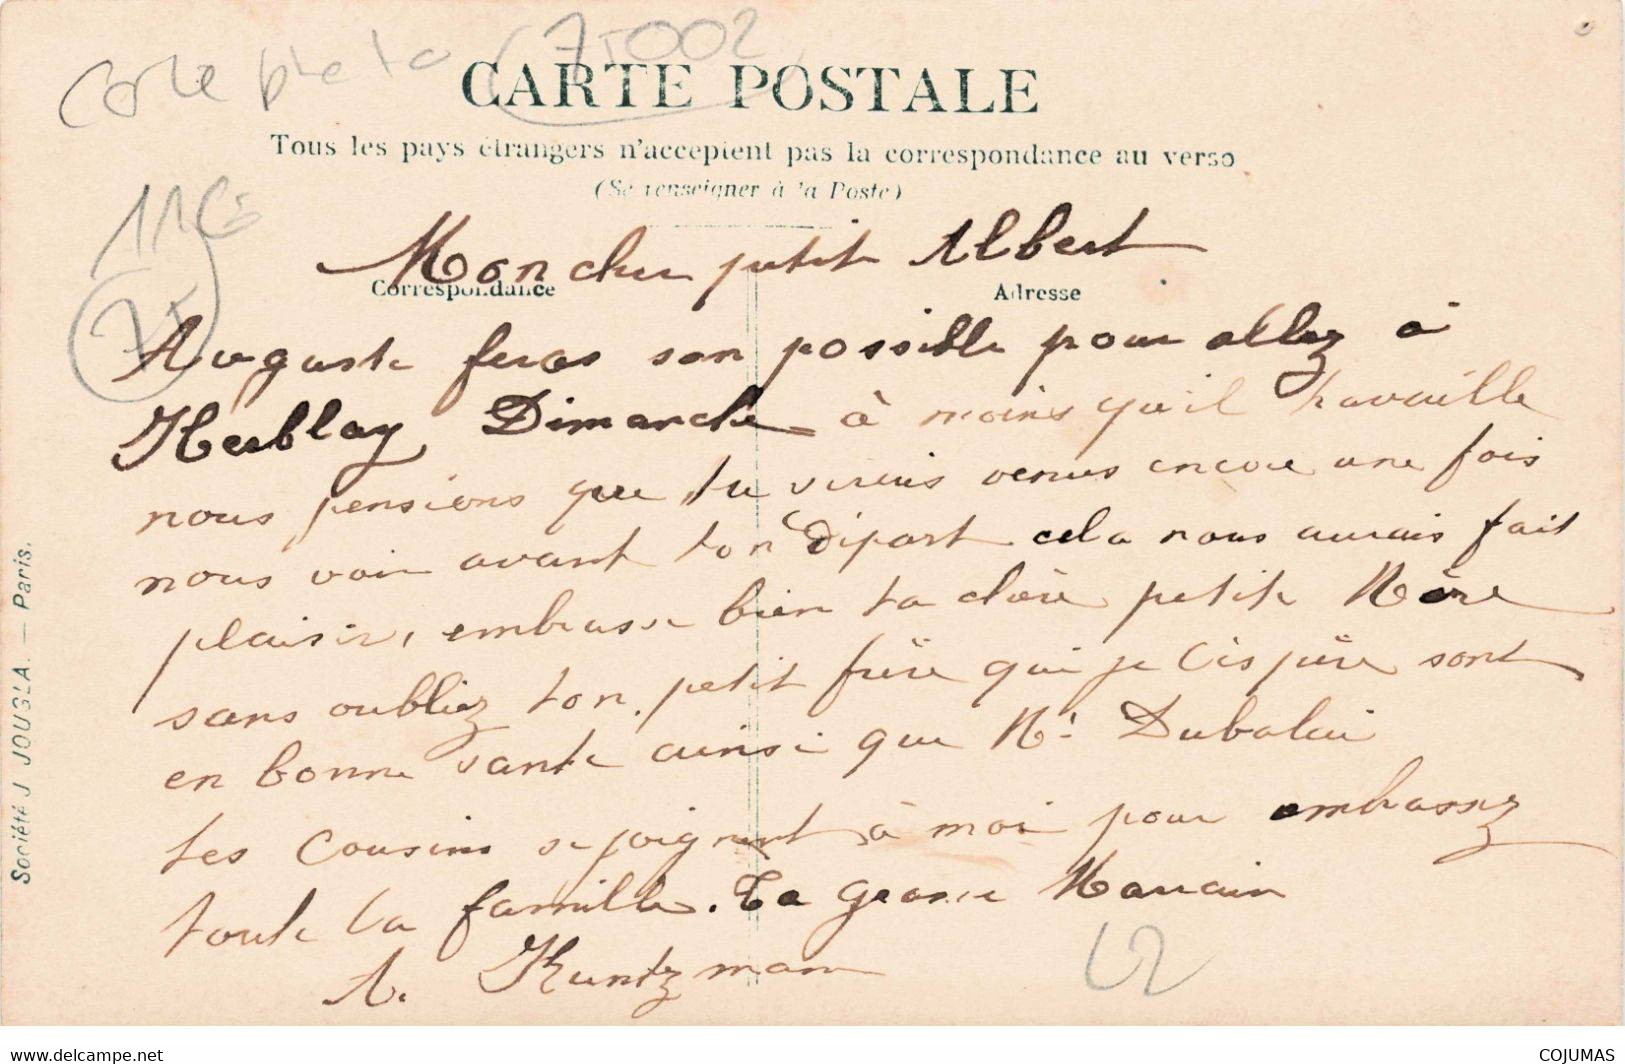 Carte photo (75002)
CARTE POSTALE
Tous les pays étrangers n'acceptent pas la correspondance au verso
(Se renseigner à la Poste)
Mon cher petit Albert
Correspondance Adresse
Auguste feras son possible pour allez à
Herblay Dimanche à moins qu'il travaille
nous pensions que tu serais venus encore une fois
nous voir avant ton Départ cela nous aurais fait
plaisir, embrasse bien ta chère petite Mère
sans oubliez ton petit frère qui je l'ispère sont
en bonne sante ainsi que Mr
tes Cousins se joignent à moi pour embrassez
toute la famille. Ta grosse Marrain
A. Kuntzman
Société J JOUGLA. — Paris.
www.delcampe.net
COJUMAS